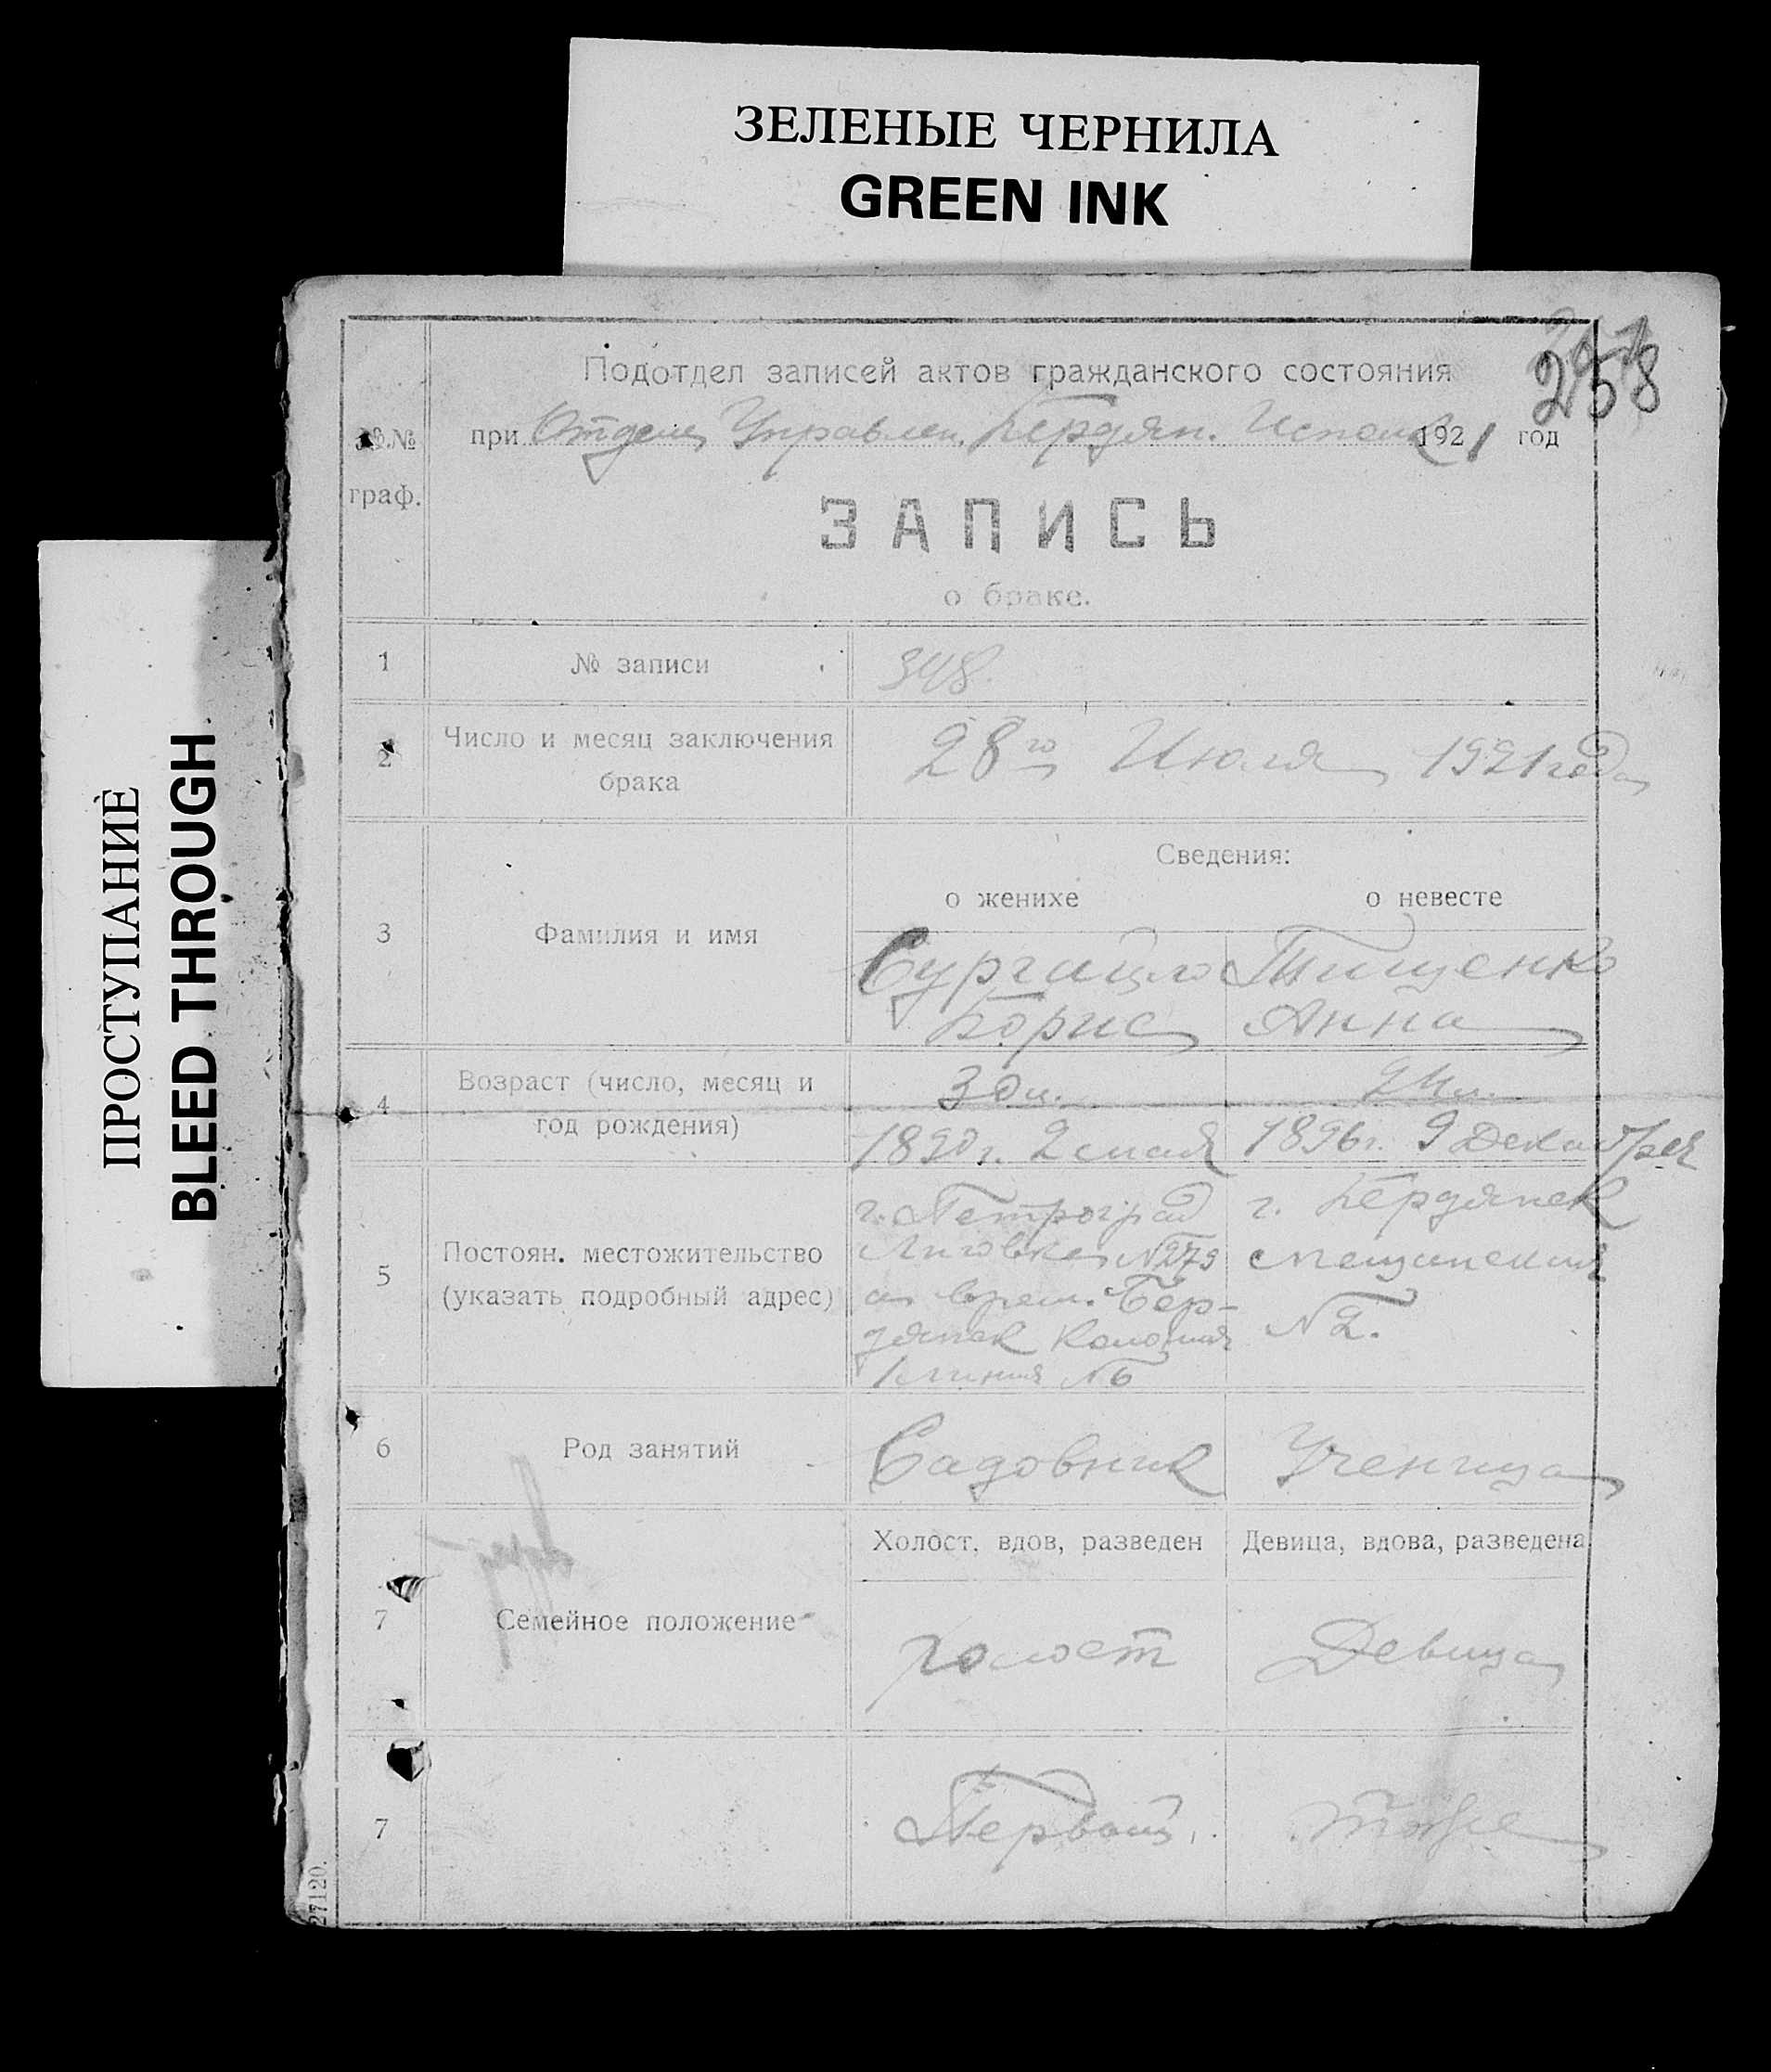 ЗЕЛЕНЫЕ ЧЕРНИЛА
GREEN INK
ПРОСТУПАНИЕ
BLEED THROUGH
258
Подотдел записей актов гражданского состояния
№№ граф.
при Отделе Управлен. Бердян. Исполк 1921 год
ЗАПИСЬ
о браке.
1 № записи 348.
2 Число и месяц заключения
брака
28го Июля 1921 года
Сведения:
о женихе о невесте
3 Фамилия и имя
Тищенко
Борис Анна
4 Возраст (число, месяц и
год рождения)
1890 г. 2 мая 1896 г. 9 Декабря
5 Постоян. местожительство
(указать подробный адрес)
г. Петроград
Лиговка №
а врем. Бер-
дянск Колония
1 линия № 6
г. Бердянск
Мещанская
№ 2.
6 Род занятий Садовник Ученица
Холост, вдов, разведен Девица, вдова, разведена
7 Семейное положение холост Девица
7 Первый. тоже
27120.